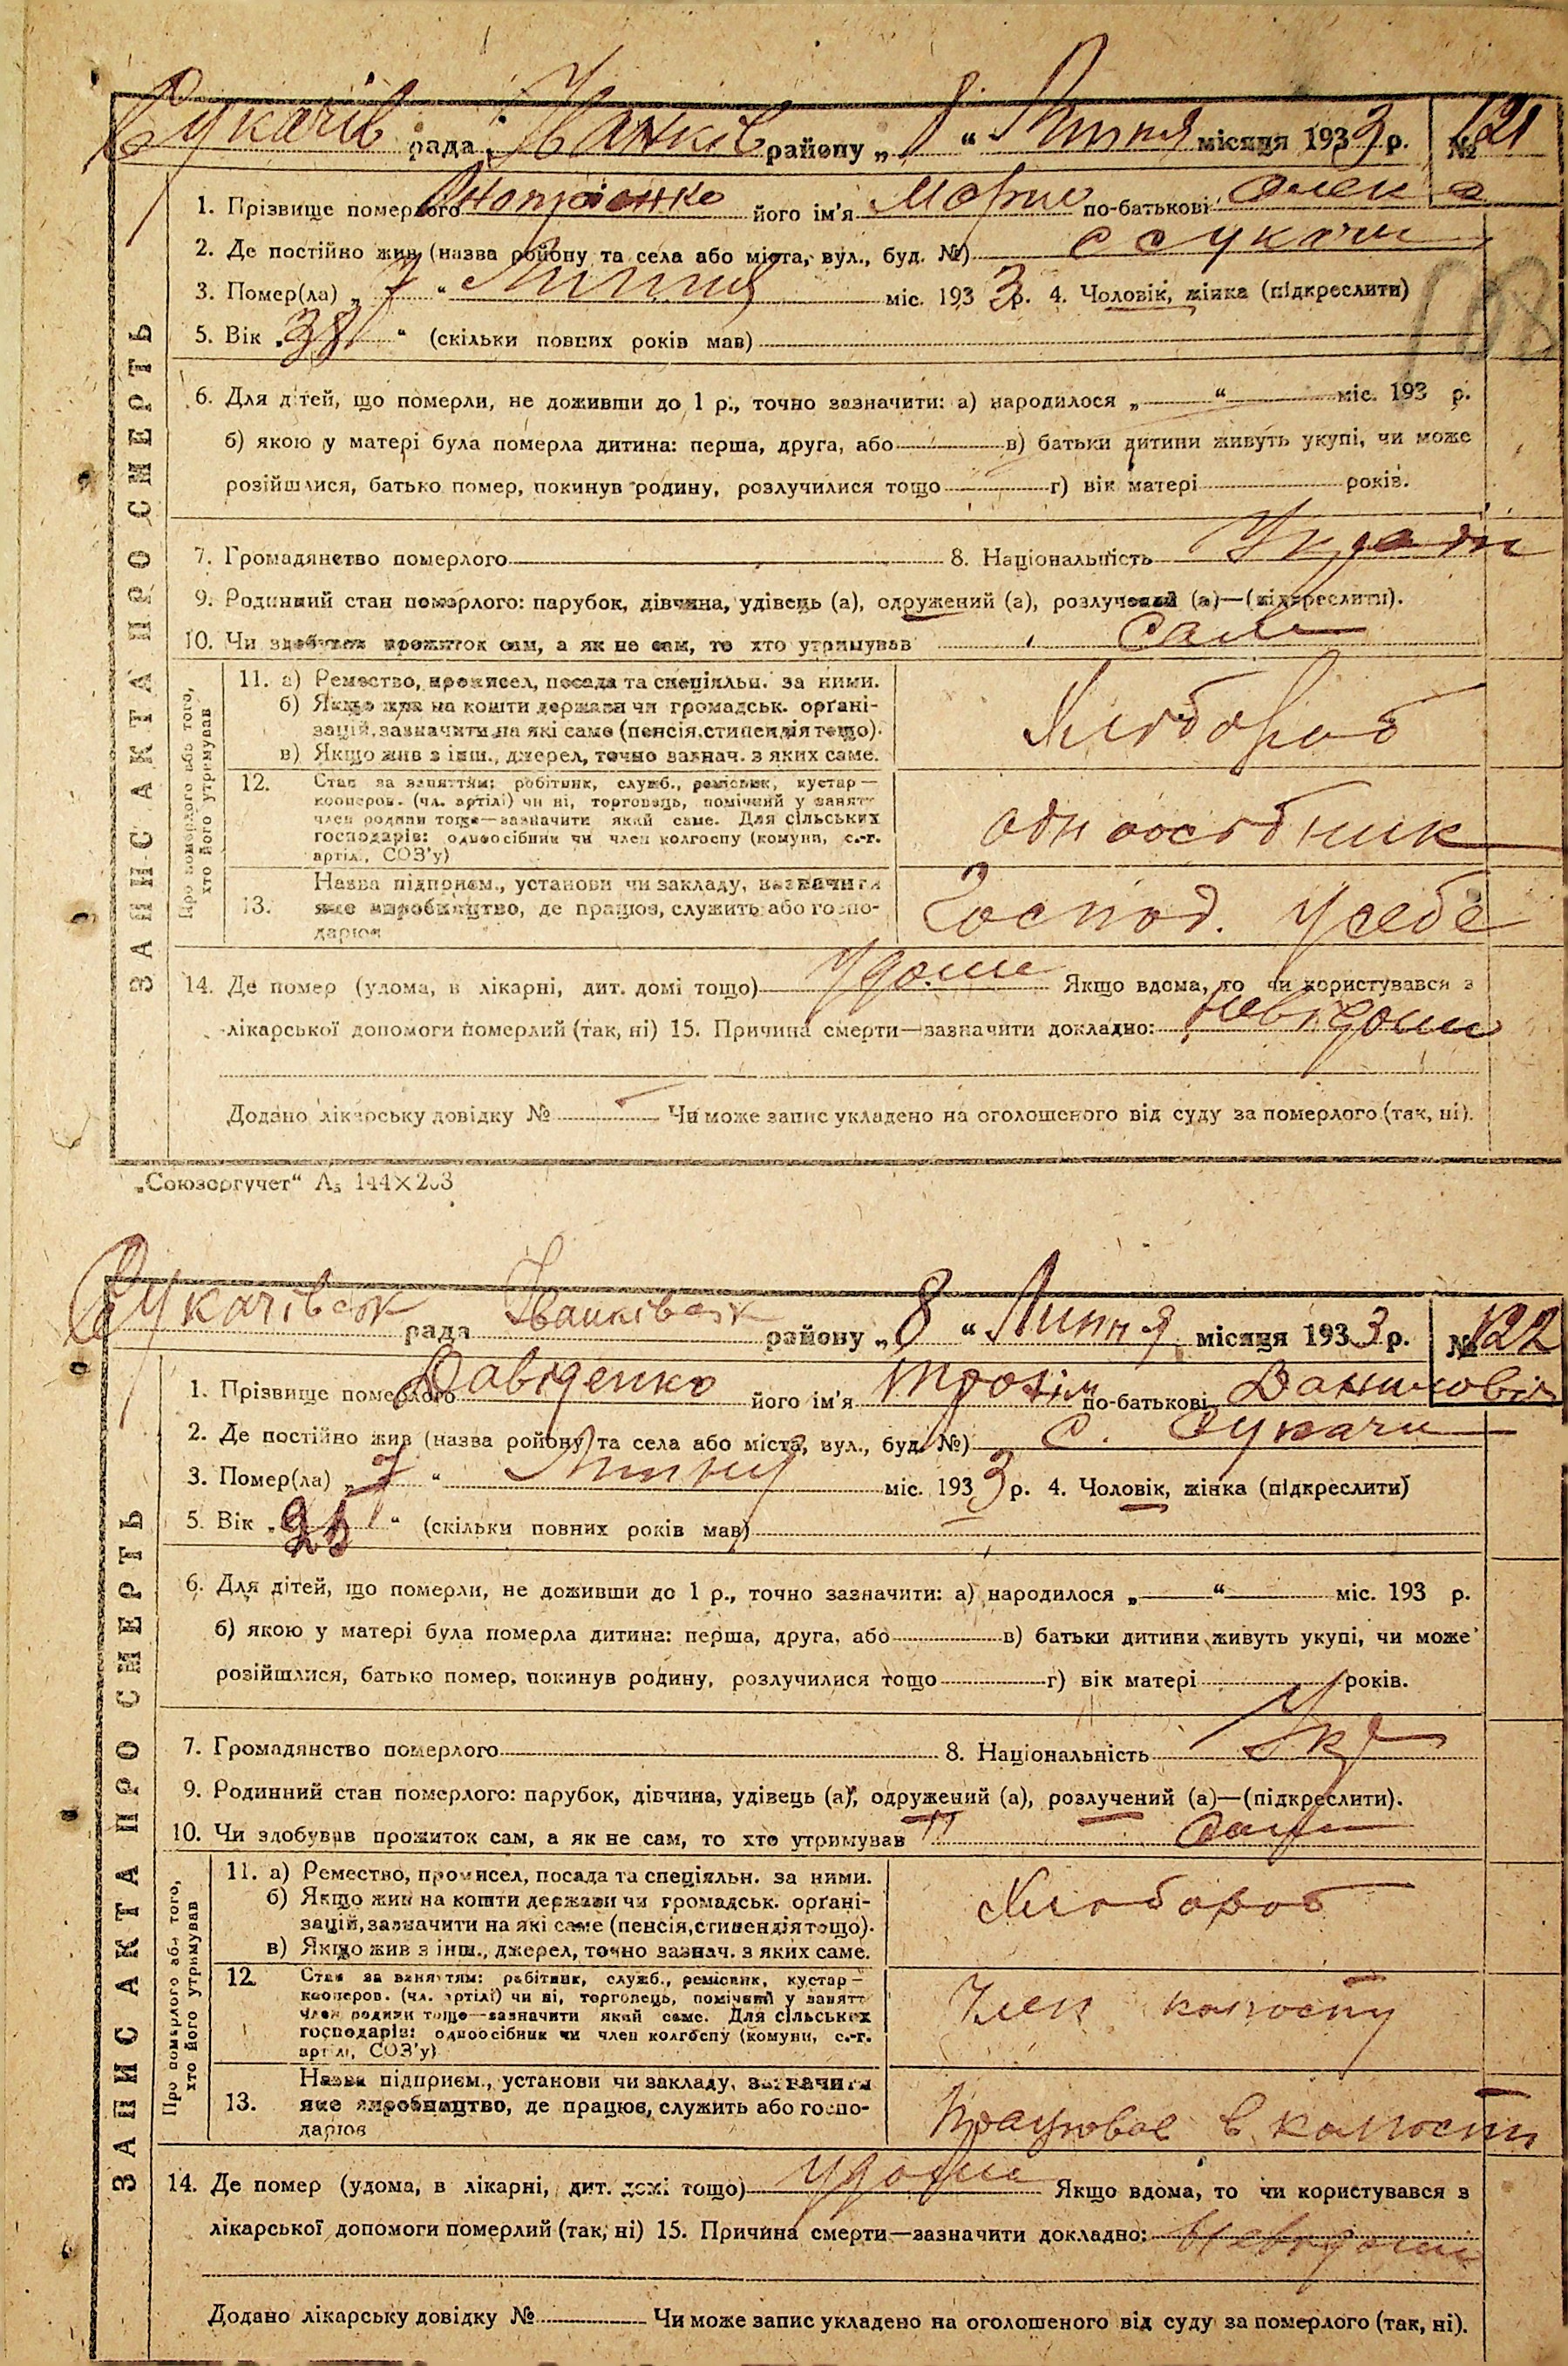 Сукачів рада Іванків району „8“ Липня місяця 1933 р. № 121
1. Прізвище померлого його ім'я по-батькові Олек
2. Де постійно жив (назва району та села або міста, вул., буд. №) с Сукачи
3. Помер(ла) „7“ Липня міс. 1933 р. 4. Чоловік, жінка (підкреслити)
108
5. Вік „38“ (скільки повних років мав)
6. Для дітей, що померли, не доживши до 1 р., точно зазначити: а) народилося „ “ міс. 193 р.
б) якою у матері була померла дитина: перша, друга, або в) батьки дитини живуть укупі, чи може
розійшлися, батько помер, покинув родину, розлучилися тощо г) вік матері років.
7. Громадянство померлого 8. Національність
9. Родинний стан померлого: парубок, дівчина, удівець (а), одружений (а), розлучений (а)—(підкреслити).
10. Чи здобував прожиток сам, а як не сам, то хто утримував сам
11. а) Ремество, промисел, посада та спеціяльн. за ними.
б) Якщо жив на кошти держави чи громадськ. орґані-
зацій, зазначити на які саме (пенсія, стипендія тощо).
в) Якщо жив з інш., джерел, точно зазнач. з яких саме.
Хлібороб
12. Стан за заняттям: робітник, служб., ремісник, кустар—
кооперов. (чл. артілі) чи ні, торговець, помічний у занятт
член родини тоще—зазначити який саме. Для сільських
господарів: одноосібник чи член колгоспу (комуни, с.-г.
артіл., СОЗ'у)
одноосібник
Назва підприєм., установи чи закладу, зазначити
13. яке виробництво, де працює, служить або госпо-
дарює
Господ. у себе
14. Де помер (удома, в лікарні, дит. домі тощо) удома Якщо вдома, то чи користувався з
лікарської допомоги померлий (так, ні) 15. Причина смерти—зазначити докладно: невідома
Додано лікарську довідку № Чи може запис укладено на оголошеного від суду за померлого (так, ні).
ЗАПИС АКТА ПРО СМЕРТЬ
Про померлого або того,
хто його утримував
„Союзоргучет“ А₅ 144×203
Сукачівськ рада Іванківськ району „8“ Липня місяця 1933 р. № 122
1. Прізвище померлого Давіденко його ім'я Трохім по-батькові Данилович
2. Де постійно жив (назва ройону та села або міста, вул., буд. №) с. Сукачи
3. Помер(ла) „7“ Липня міс. 1933 р. 4. Чоловік, жінка (підкреслити)
5. Вік „ “ (скільки повних років мав)
6. Для дітей, що померли, не доживши до 1 р., точно зазначити: а) народилося „ “ міс. 193 р.
б) якою у матері була померла дитина: перша, друга, або в) батьки дитини живуть укупі, чи може
розійшлися, батько помер, покинув родину, розлучилися тощо г) вік матері років.
7. Громадянство померлого 8. Національність Укр
9. Родинний стан померлого: парубок, дівчина, удівець (а), одружений (а), розлучений (а)—(підкреслити).
10. Чи здобував прожиток сам, а як не сам, то хто утримував сам
11. а) Ремество, промисел, посада та спеціяльн. за ними.
б) Якщо жив на кошти держави чи громадськ. орґані-
зацій, зазначити на які саме (пенсія, стипендія тощо).
в) Якщо жив з інш., джерел, точно зазнач. з яких саме.
Хлібороб
12. Стан за заняттям: робітник, служб., ремісник, кустар—
кооперов. (чл. артілі) чи ні, торговець, помічний у занятт
член родини тоще—зазначити який саме. Для сільських
господарів: одноосібник чи член колгоспу (комуни, с.-г.
артілі, СОЗ'у)
Член колгоспу
Назва підприєм., установи чи закладу, зазначити
13. яке виробництво, де працює, служить або госпо-
дарює
Працював в колгоспі
14. Де помер (удома, в лікарні, дит. домі тощо) удома Якщо вдома, то чи користувався з
лікарської допомоги померлий (так, ні) 15. Причина смерти—зазначити докладно: Невідома
Додано лікарську довідку № Чи може запис укладено на оголошеного від суду за померлого (так, ні).
ЗАПИС АКТА ПРО СМЕРТЬ
Про померлого або того,
хто його утримував